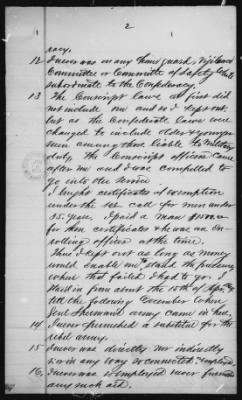 2
racy.
12 I never was on any home guard, Vigilance
Committee or Committee of Safety
subordinate to the Confederacy.
13 The Conscript laws at first did
not include me and so I kept out,
but as the Confederate laws were
changed to include older & younger
men among those liable to military
duty. the Conscript officers came
after me and I was compelled to
go into the service
I bought certificates of exemption
under the call for men under
35 years. I paid a man
for these certificates who was an en-
rolling officer at the time.
Thus I kept out as long as money
would enable me to
when that failed I had to go. I
staid in from about the 15th of
till the following December when
Genl Sherman's army came in here,
14 I never furnished a substitute for the
rebel army.
15 I never was directly nor indirectly
nor in any way so connected
16 I never was so employed never furnished
any such aid.